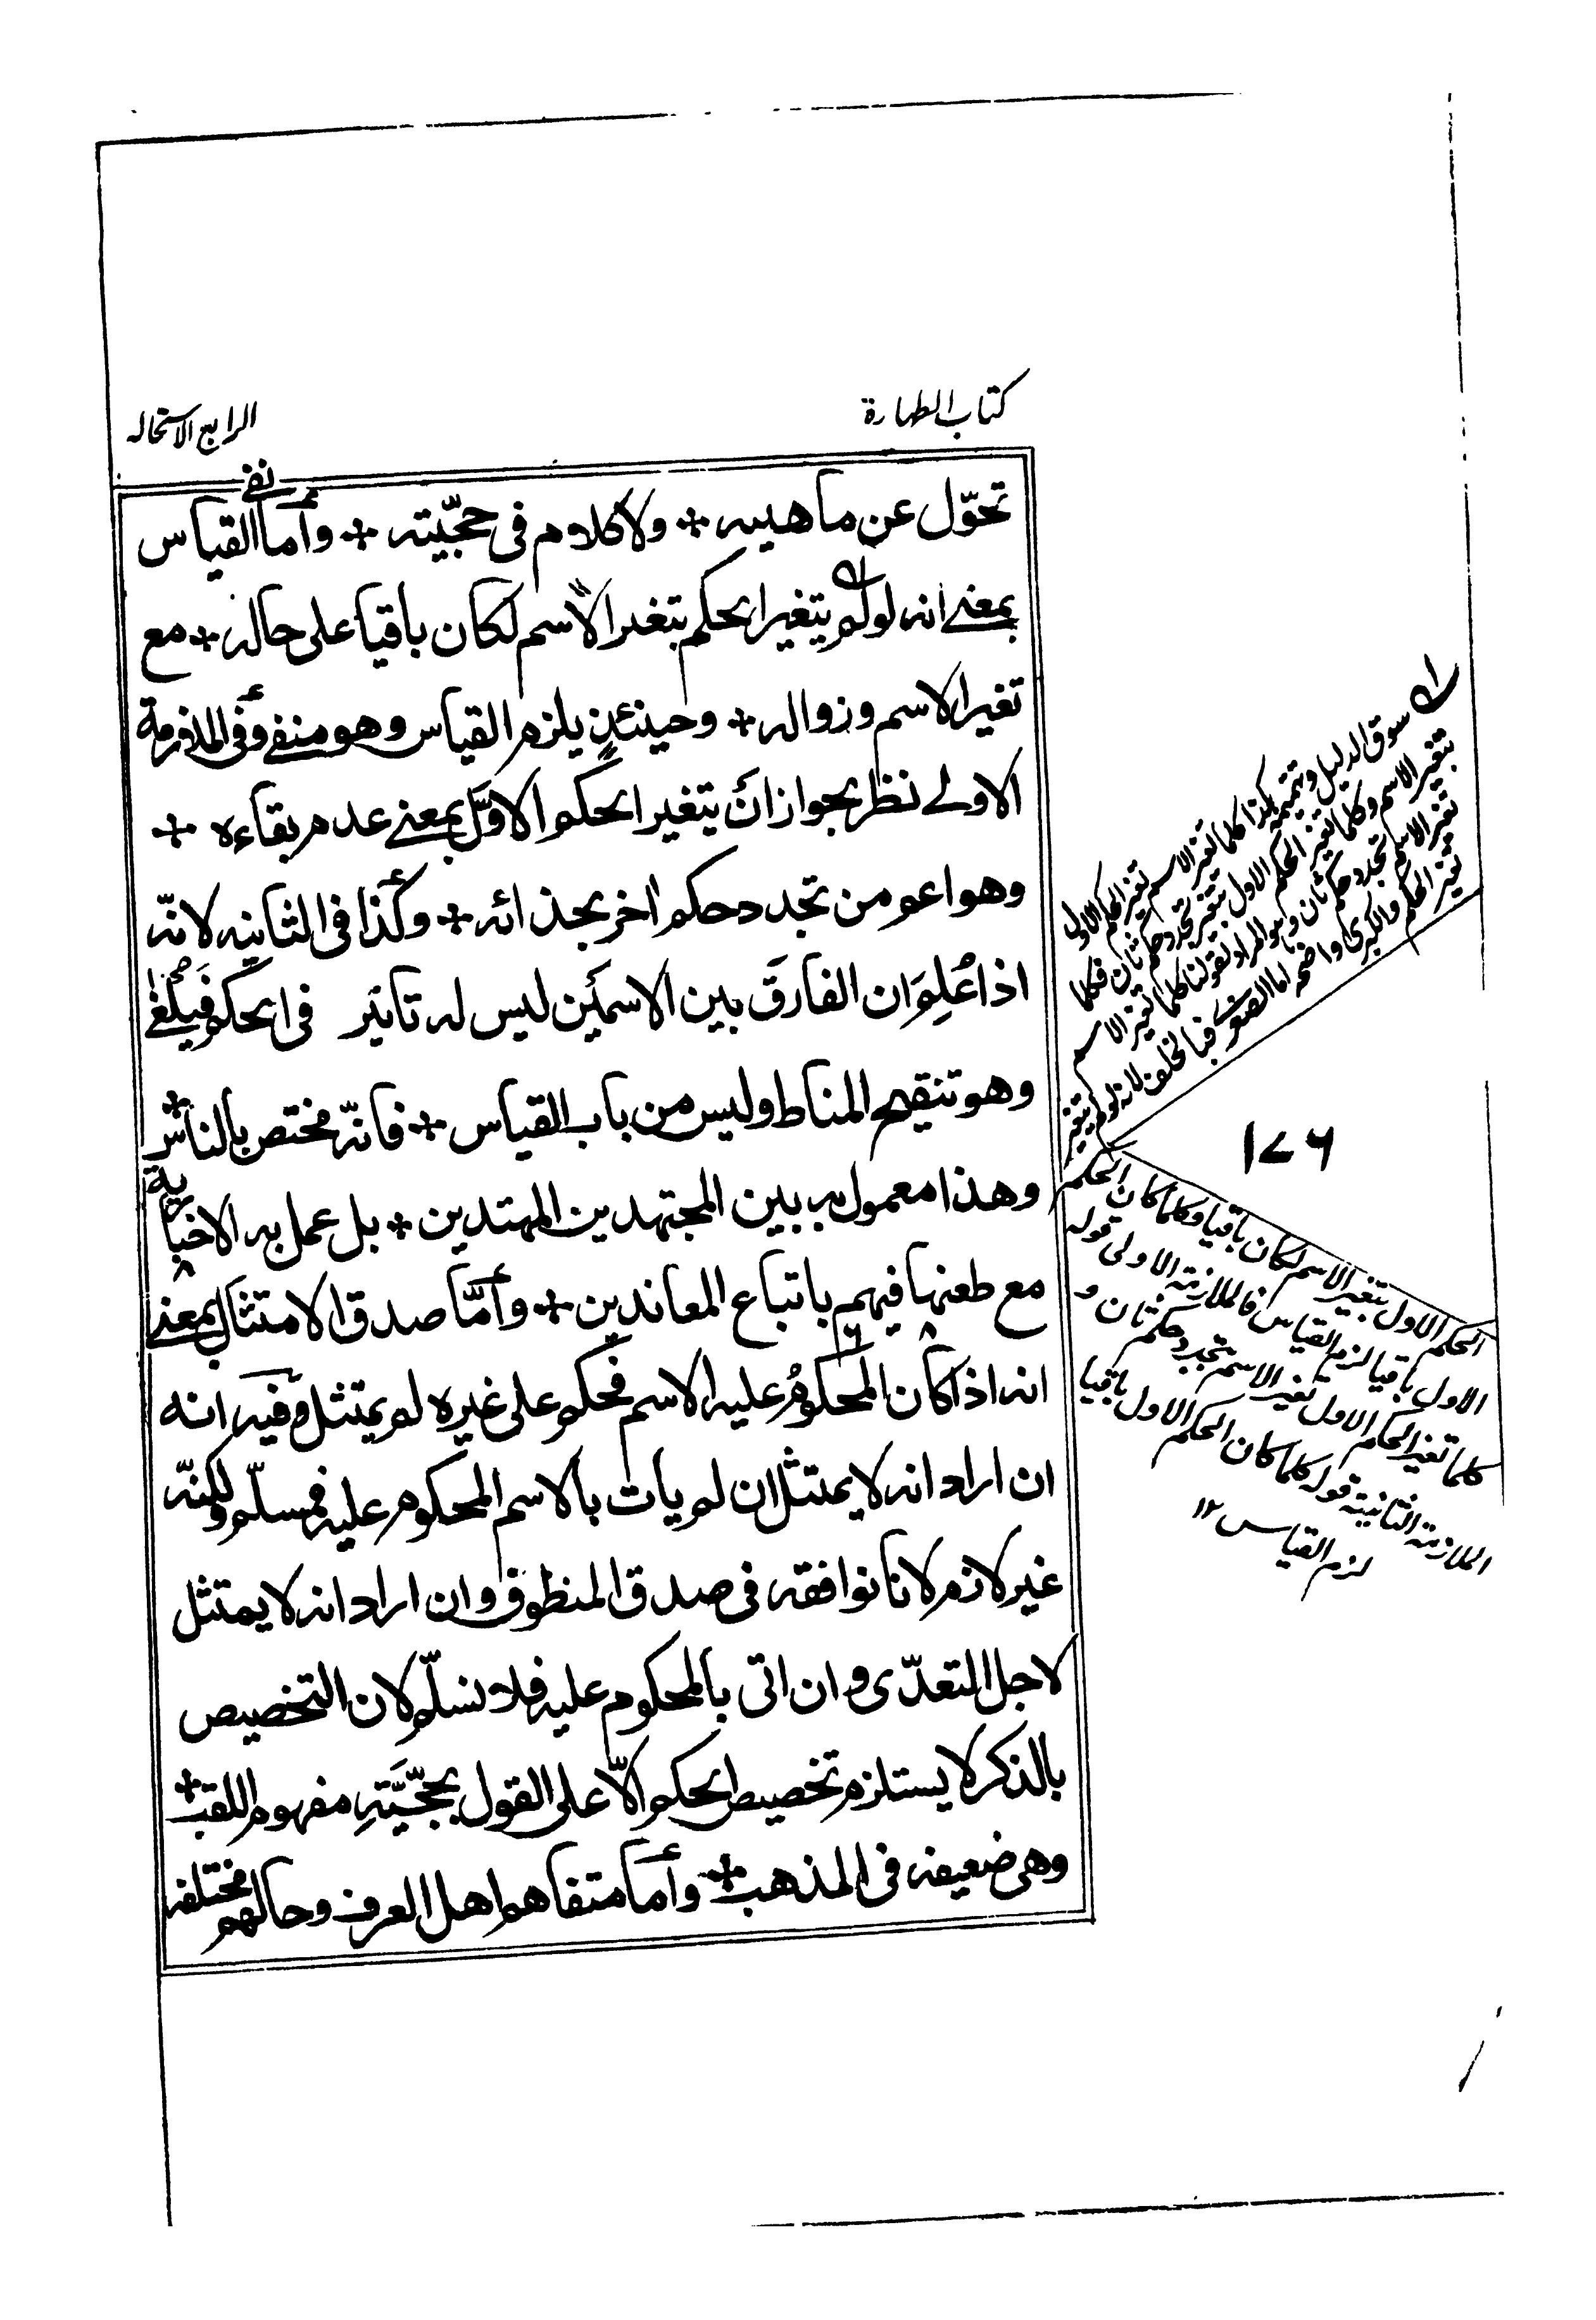 كتاب الطهارة
الرابع الاستحاله
تحوّل عن ماهيته + ولا كلام فى حجّيته + وأما نفى القياس
بمعنى انه لو لم يتغير الحكم بتغير الاسم لكان باقيا على حاله + مع
تغير الاسم وزواله + وحينئذٍ يلزم القياس وهو منفى وفى الملازمة
الاولى نظر بجواز ان يتغير الحكم الاوّل بمعنى عدم بقاءه +
وهو اعم من تجدد حكم اخر بحذائه + وكذا فى الثانيه لانّه
اذا عُلِمَ ان الفارق بين الاسمين ليس له تاثير فى الحكم فيلغى
وهو تنقيح المناط وليس من باب القياس + فانّه مختص بالناس +
وهذا معمول به بين المجتهدين المهتدين + بل عمل به الاخبارية
مع طعنها فيهم باتباع المعاندين + وأمّا صدق الامتثال بمعنى
انه اذا كان المحكومُ عليه الاسم فحكم على غيره لم يمتثل وفيه انه
ان اراد انه لا يمتثل ان لم يات بالاسم المحكوم عليه فمسلّم ولكنّه
غير لازم لانا نوافقه فى صدق المنطوق وان اراد انه لا يمتثل
لاجل التعدّى وان اتى بالمحكوم عليه فلا نسلّم لان التخصيص
بالذكر لا يستلزم تخصيص الحكم الاّ على القول بحجّيّةِ مفهوم اللقب +
وهى ضعيفه فى المذهب + وأما متفاهم اهل العرف وحالهم مختلفه
سوق الدليل وتتميمه هكذا كلما تغير الاسم تغير الحكم الاول
بتغير الاسم وكلما تغير الحكم الاول بتغير تجدد حكم ثان فكلما
تغير الاسم تجدد حكم ثان وهو المراد بقولنا كلما تغير الاسم
تغير الحكم والكبرى واضحه اما الصغرى فبالخلف لانه لو لم يتغير
١٧٦
الحكم الاول بتغير الاسم لكان باقيا وكلما كان الحكم
الاول باقيا لزم القياس فالملازمة الاولى قوله
كلما تغير الحكم الاول تغير الاسم تجدد حكم ثان و
الملازمة الثانية قوله كلما كان الحكم الاول باقيا
لزم القياس ١٢